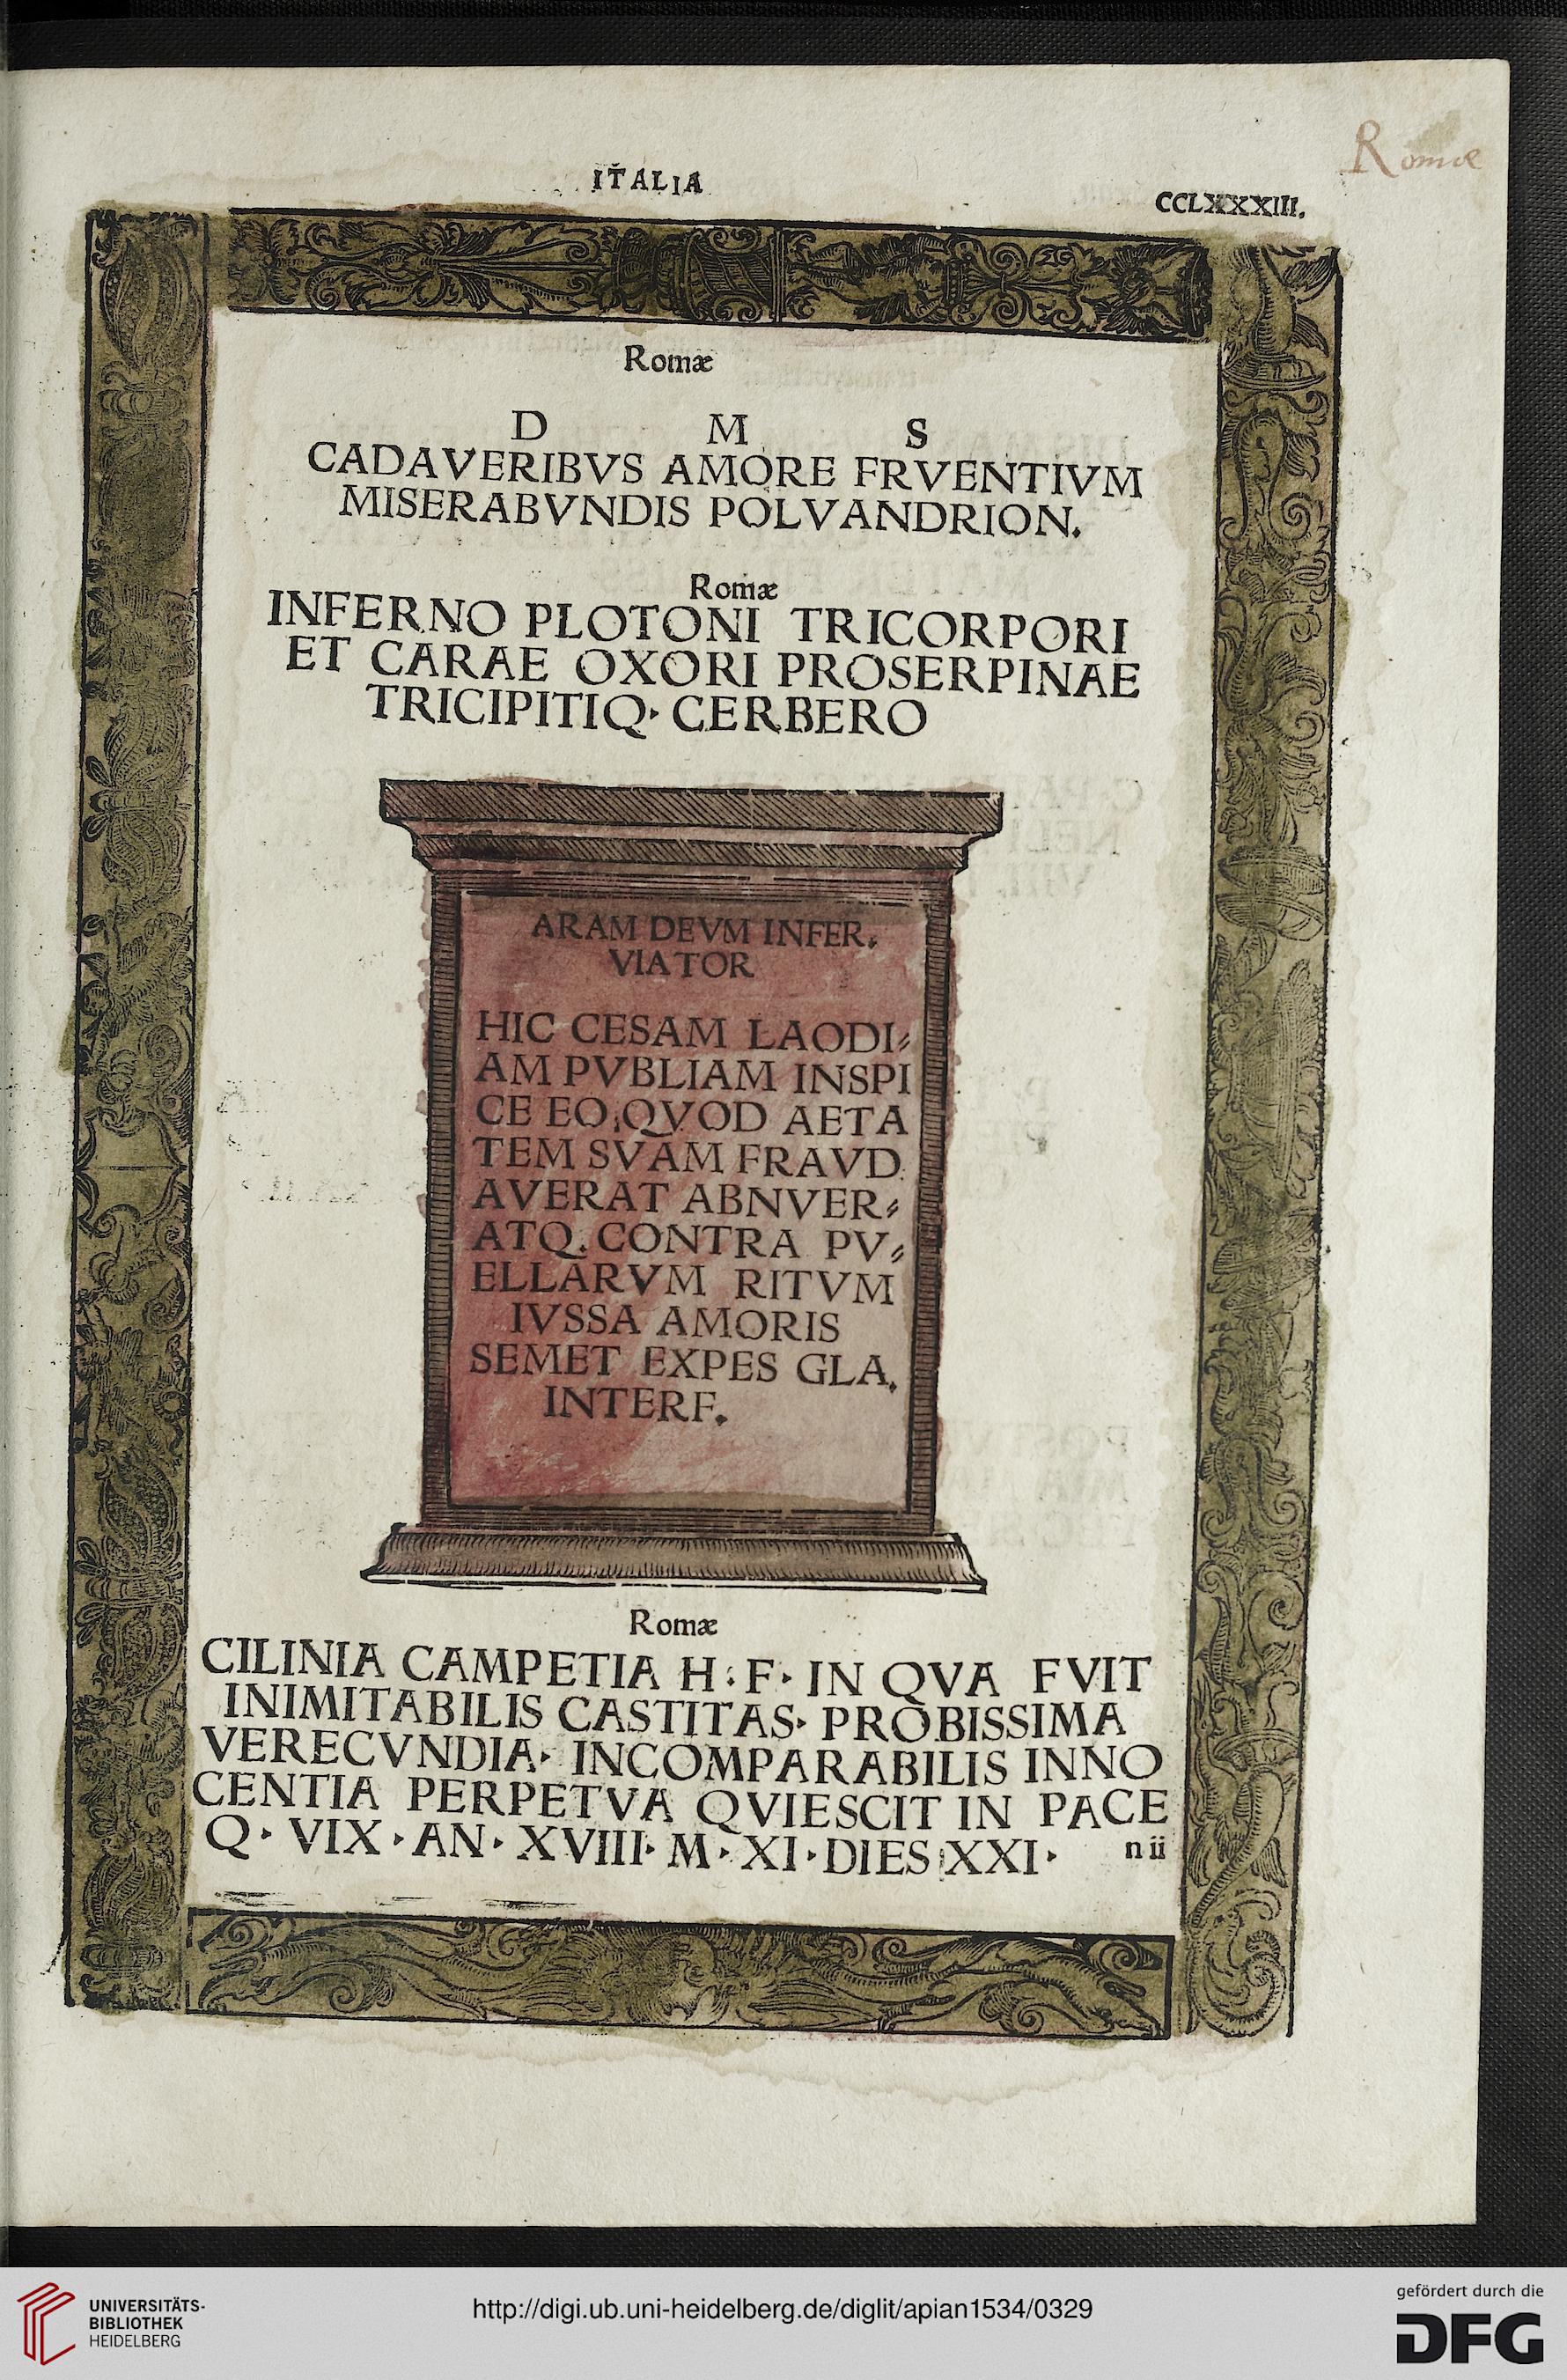 Romæ
ITALIA
CCLXXXIII.
Romæ
D M S
CADAVERIBVS AMORE FRVENTIVM
MISERABVNDIS POLVANDRION.
Romæ
INFERNO PLOTONI TRICORPORI
ET CARAE OXORI PROSERPINAE
TRICIPITIQ· CERBERO
ARAM DEVM INFER.
VIATOR
HIC CESAM LAODI⸗
AM PVBLIAM INSPI
CE EO,QVOD AETA
TEM SVAM FRAVD
AVERAT ABNVER⸗
ATQ. CONTRA PV⸗
ELLARVM RITVM
IVSSA AMORIS
SEMET EXPES GLA.
INTERF.
Romæ
CILINIA CAMPETIA H · F · IN QVA FVIT
INIMITABILIS CASTITAS· PROBISSIMA
VERECVNDIA· INCOMPARABILIS INNO
CENTIA PERPETVA QVIESCIT IN PACE
Q · VIX · AN · XVIII· M · XI · DIES XXI ·
n ii
UNIVERSITÄTS-
BIBLIOTHEK
HEIDELBERG
http://digi.ub.uni-heidelberg.de/diglit/apian1534/0329
gefördert durch die
DFG